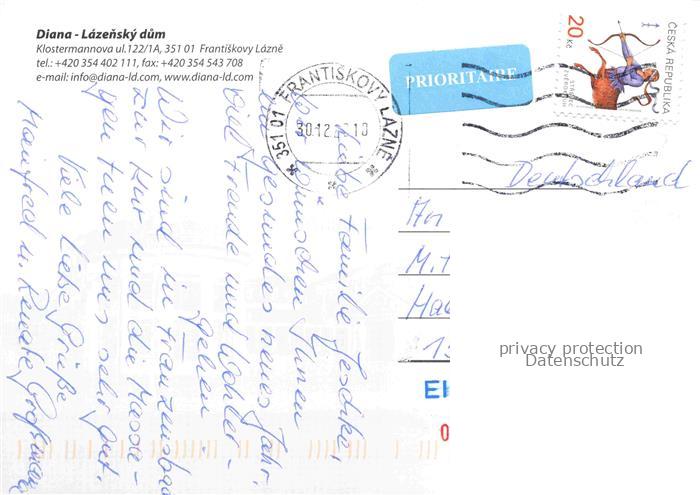 Diana - Lázeňský dům
Klostermannova ul.122/1A, 351 01 Františkovy Lázně
tel.: +420 354 402 111, fax: +420 354 543 708
e-mail: info@diana-ld.com, www.diana-ld.com
351 01 FRANTIŠKOVY LÁZNĚ
30.12 10
PRIORITAIRE
20 Kč
ČESKÁ REPUBLIKA
Deutschland
Liebe Familie Jeschke,
wir wünschen Ihnen
ein gesundes neues Jahr.
Viel Freude und Wohler-
gehen
Wir sind in Franzensbad
zur Kur und die Massa-
gen tuen uns sehr gut.
Viele liebe Grüße
Manfred u. Renate
An
privacy protection
Datenschutz